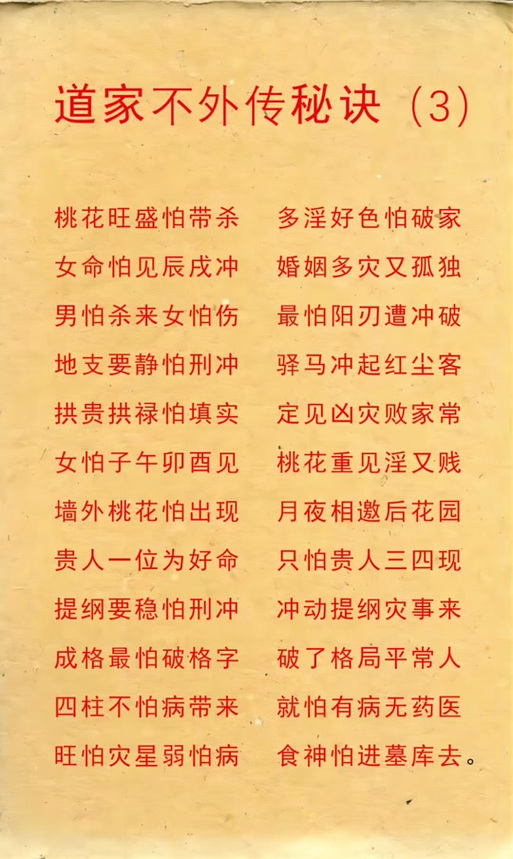 道家不外传秘诀（3）
桃花旺盛怕带杀 多淫好色怕破家
女命怕见辰戌冲 婚姻多灾又孤独
男怕杀来女怕伤 最怕阳刃遭冲破
地支要静怕刑冲 驿马冲起红尘客
拱贵拱禄怕填实 定见凶灾败家常
女怕子午卯酉见 桃花重见淫又贱
墙外桃花怕出现 月夜相邀后花园
贵人一位为好命 只怕贵人三四现
提纲要稳怕刑冲 冲动提纲灾事来
成格最怕破格字 破了格局平常人
四柱不怕病带来 就怕有病无药医
旺怕灾星弱怕病 食神怕进墓库去。